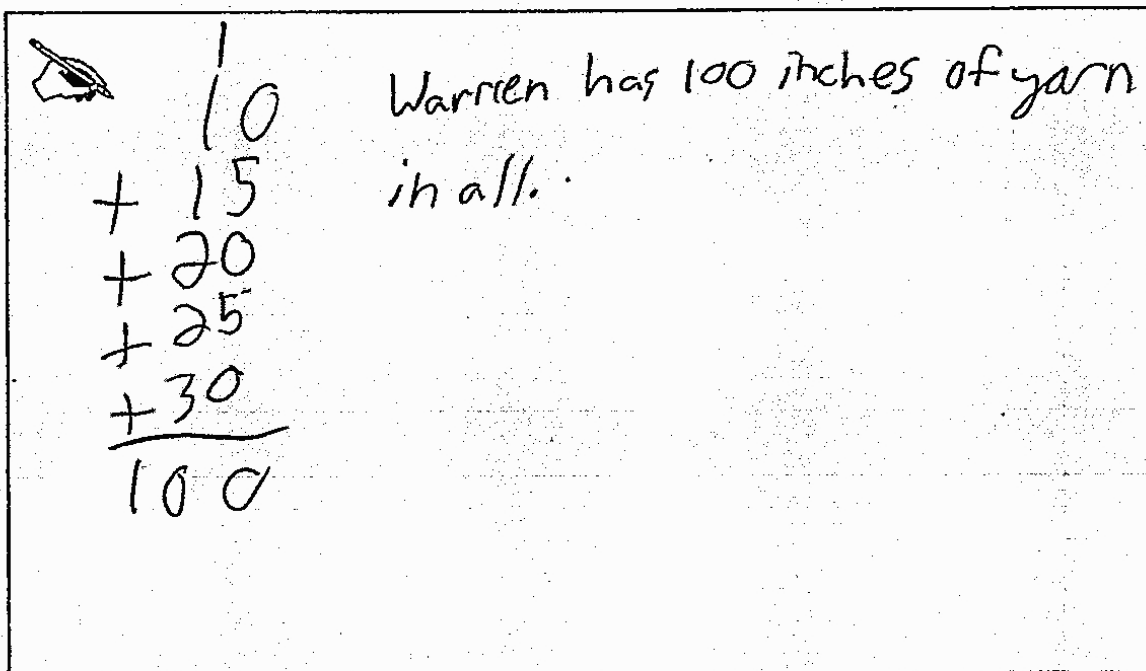 1
10
+ 15
+ 20
+ 25
+ 30
100
Warren has 100 inches of yarn
in all.